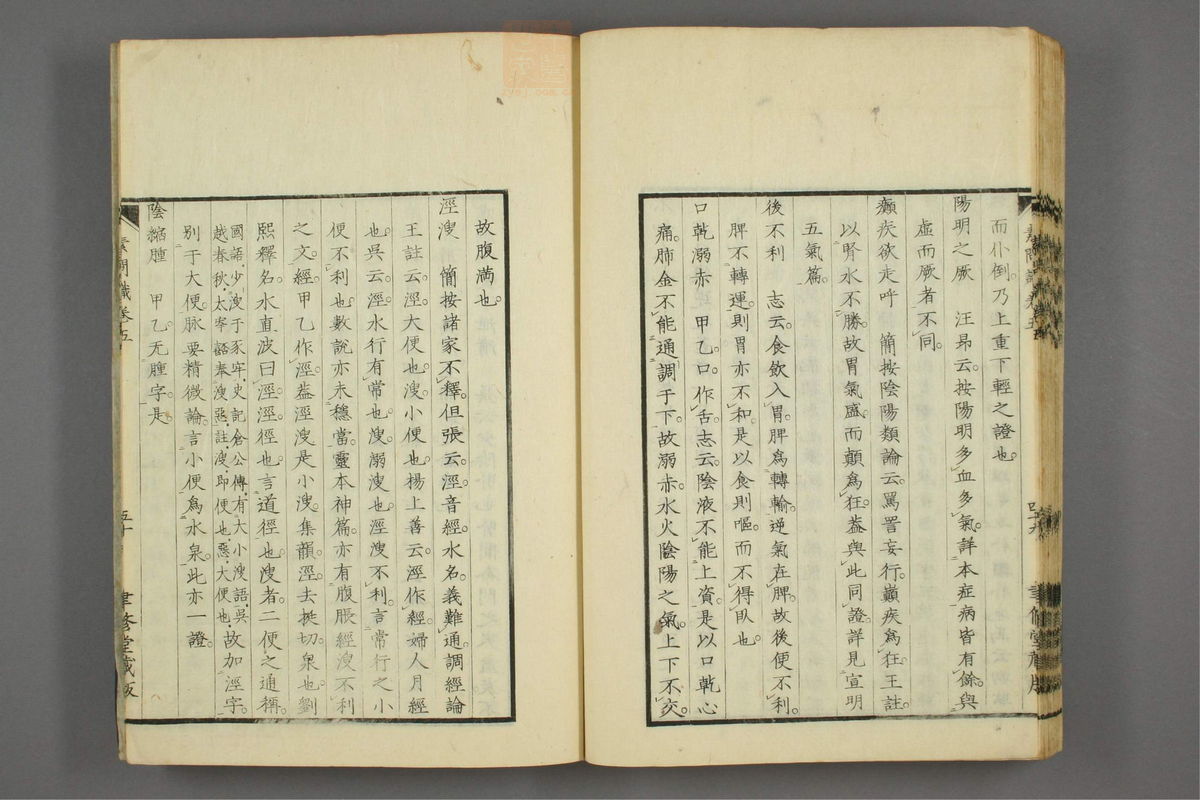 而仆倒。乃上重下輕之證也。
陽明之厥　汪昂云。按陽明多血多氣。詳本症病皆有餘。與
虛而厥者不同。
癲疾欲走呼　簡按陰陽類論云。罵詈妄行。巔疾爲狂。王註。
以腎水不勝。故胃氣盛。而顛爲狂。蓋與此同證。詳見宣明
五氣篇。
後不利　志云。食飲入胃。脾爲轉輸。逆氣在脾。故後便不利。
脾不轉運。則胃亦不和。是以食則嘔。而不得臥也。
口乾溺赤　甲乙。口。作舌。志云。陰液不能上資。是以口乾心
痛。肺金不能通調于下。故溺赤。水火陰陽之氣。上下不交。
故腹満也。
涇溲　簡按諸家不釋。但張云。涇音經。水名。義難通。調經論
王註云。涇大便也。溲小便也。楊上善云。涇作經。婦人月經
也。吳云。涇水行有常也。溲溺溲也。涇溲不利。言常行之小
便不利也。數說亦未穩當。靈本神篇。亦有腹脹經溲不利
之文。經甲乙作涇。蓋涇溲是小溲。集韻。涇去挺切。泉也。劉
熙釋名。水直波曰涇。涇徑也。言道徑也。溲者二便之通稱。
國語。少溲于豕牢。史記倉公傳。有大小溲語。吳
越春秋。太宰嚭奉溲惡。註。溲卽便也。惡。大便也。故加涇字。
別于大便。脉要精微論。言小便爲水泉。此亦一證。
陰縮腫　甲乙无腫字。是
素問識卷五
五十
聿修堂藏版